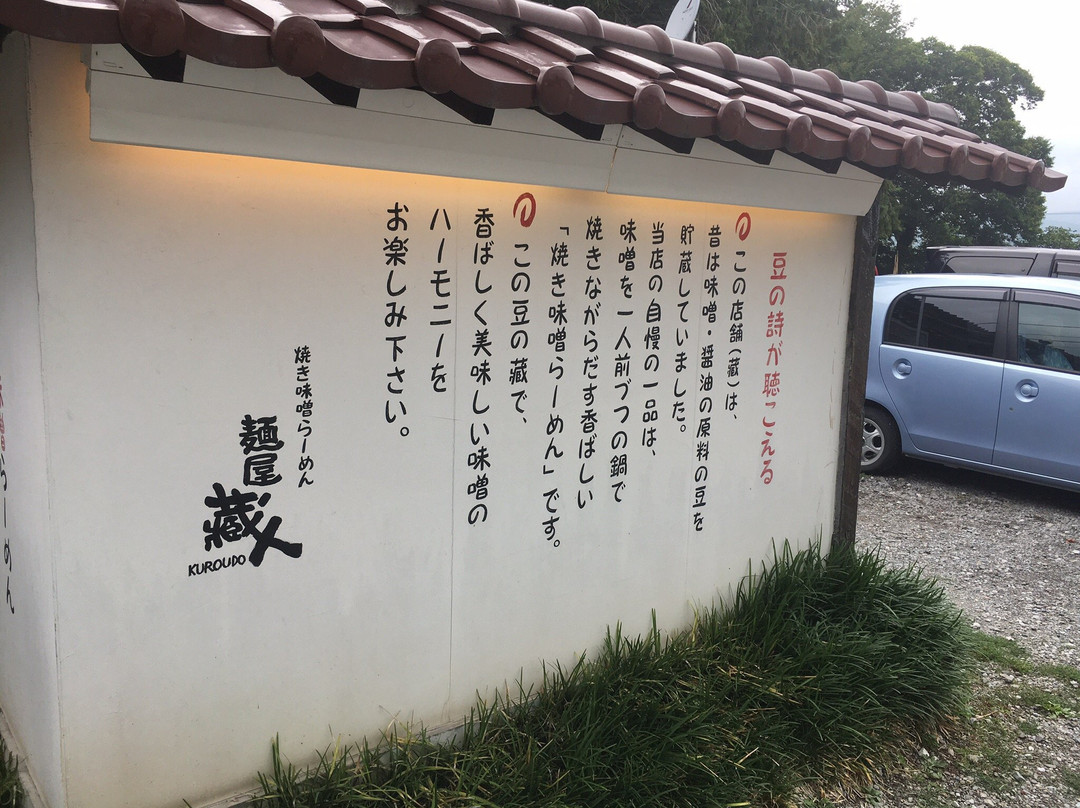 豆の詩が聴こえる
この店舗(蔵)は、
昔は味噌・醤油の原料の豆を
貯蔵していました。
当店の自慢の一品は、
味噌を一人前づつの鍋で
焼きながらだす香ばしい
「焼き味噌らーめん」です。
この豆の蔵で、
香ばしく美味しい味噌の
ハーモニーを
お楽しみ下さい。
焼き味噌らーめん
麺屋
蔵人
KUROUDO
味噌らーめん